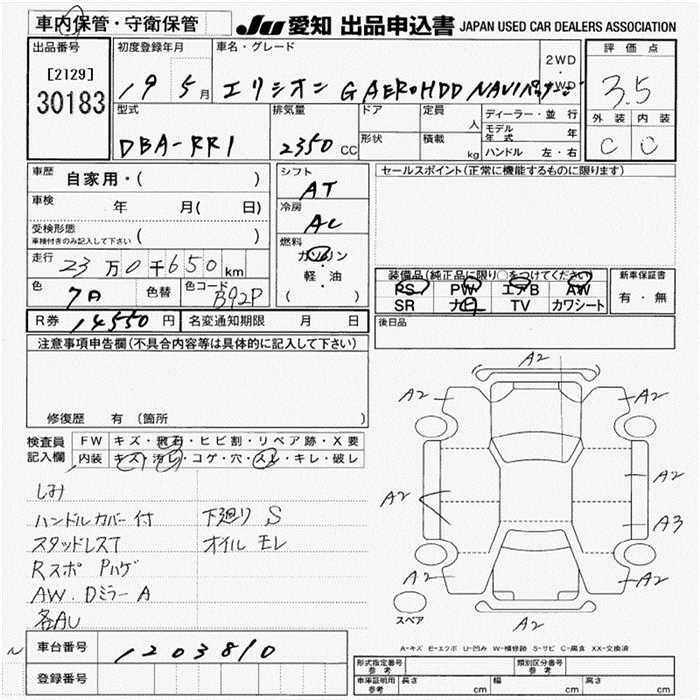 車内保管・守衛保管
JU 愛知 出品申込書 JAPAN USED CAR DEALERS ASSOCIATION
出品番号 初度登録年月 車名・グレード 評価点
[2129]
30183
19 5月
エリシオン G AERO HDD NAVIパッケージ
2WD
・
4WD
3.5
型式 排気量 ドア 定員 ディーラー・並行 外装 内装
DBA-RR1 2350 CC 人 モデル年式 年
形状 積載 kg ハンドル 左・右
C C
車歴 自家用・( )
シフト AT
セールスポイント(正常に機能するものに限ります)
車検 年 月( 日)
冷房 AC
受検形態
車検付きのみ記入して下さい ( )
燃料
ガソリン
・
軽・油
( )
走行 23万0千650km
色 7A 色替 色コード B92P
装備品(純正品に限り○をつけてください) 新車保証書
PS PW エアB AW 有・無
SR ナビ TV カワシート
R券 14550円 名変通知期限 月 日
後日品
注意事項申告欄(不具合内容等は具体的に記入して下さい)
修復歴 有(箇所 )
検査員 記入欄
FW キズ・飛石・ヒビ割・リペア跡・X要
内装 キズ・汚レ・コゲ・穴・スレ・キレ・破レ
しみ
ハンドルカバー付 下廻り S
スタッドレスT オイルモレ
Rスポ Pハゲ
AW.Dミラー A
各AU
A2
A2 A2
A2 A2
A3
A2 A2
スペア A2
A-キズ E-エクボ U-凹み W-補修跡 S-サビ C-腐食 XX-交換済
車台番号 1203810
登録番号
形式指定番号 参考 類別区分番号 参考
車庫証明用 参考 長さ cm 幅 cm 高さ cm